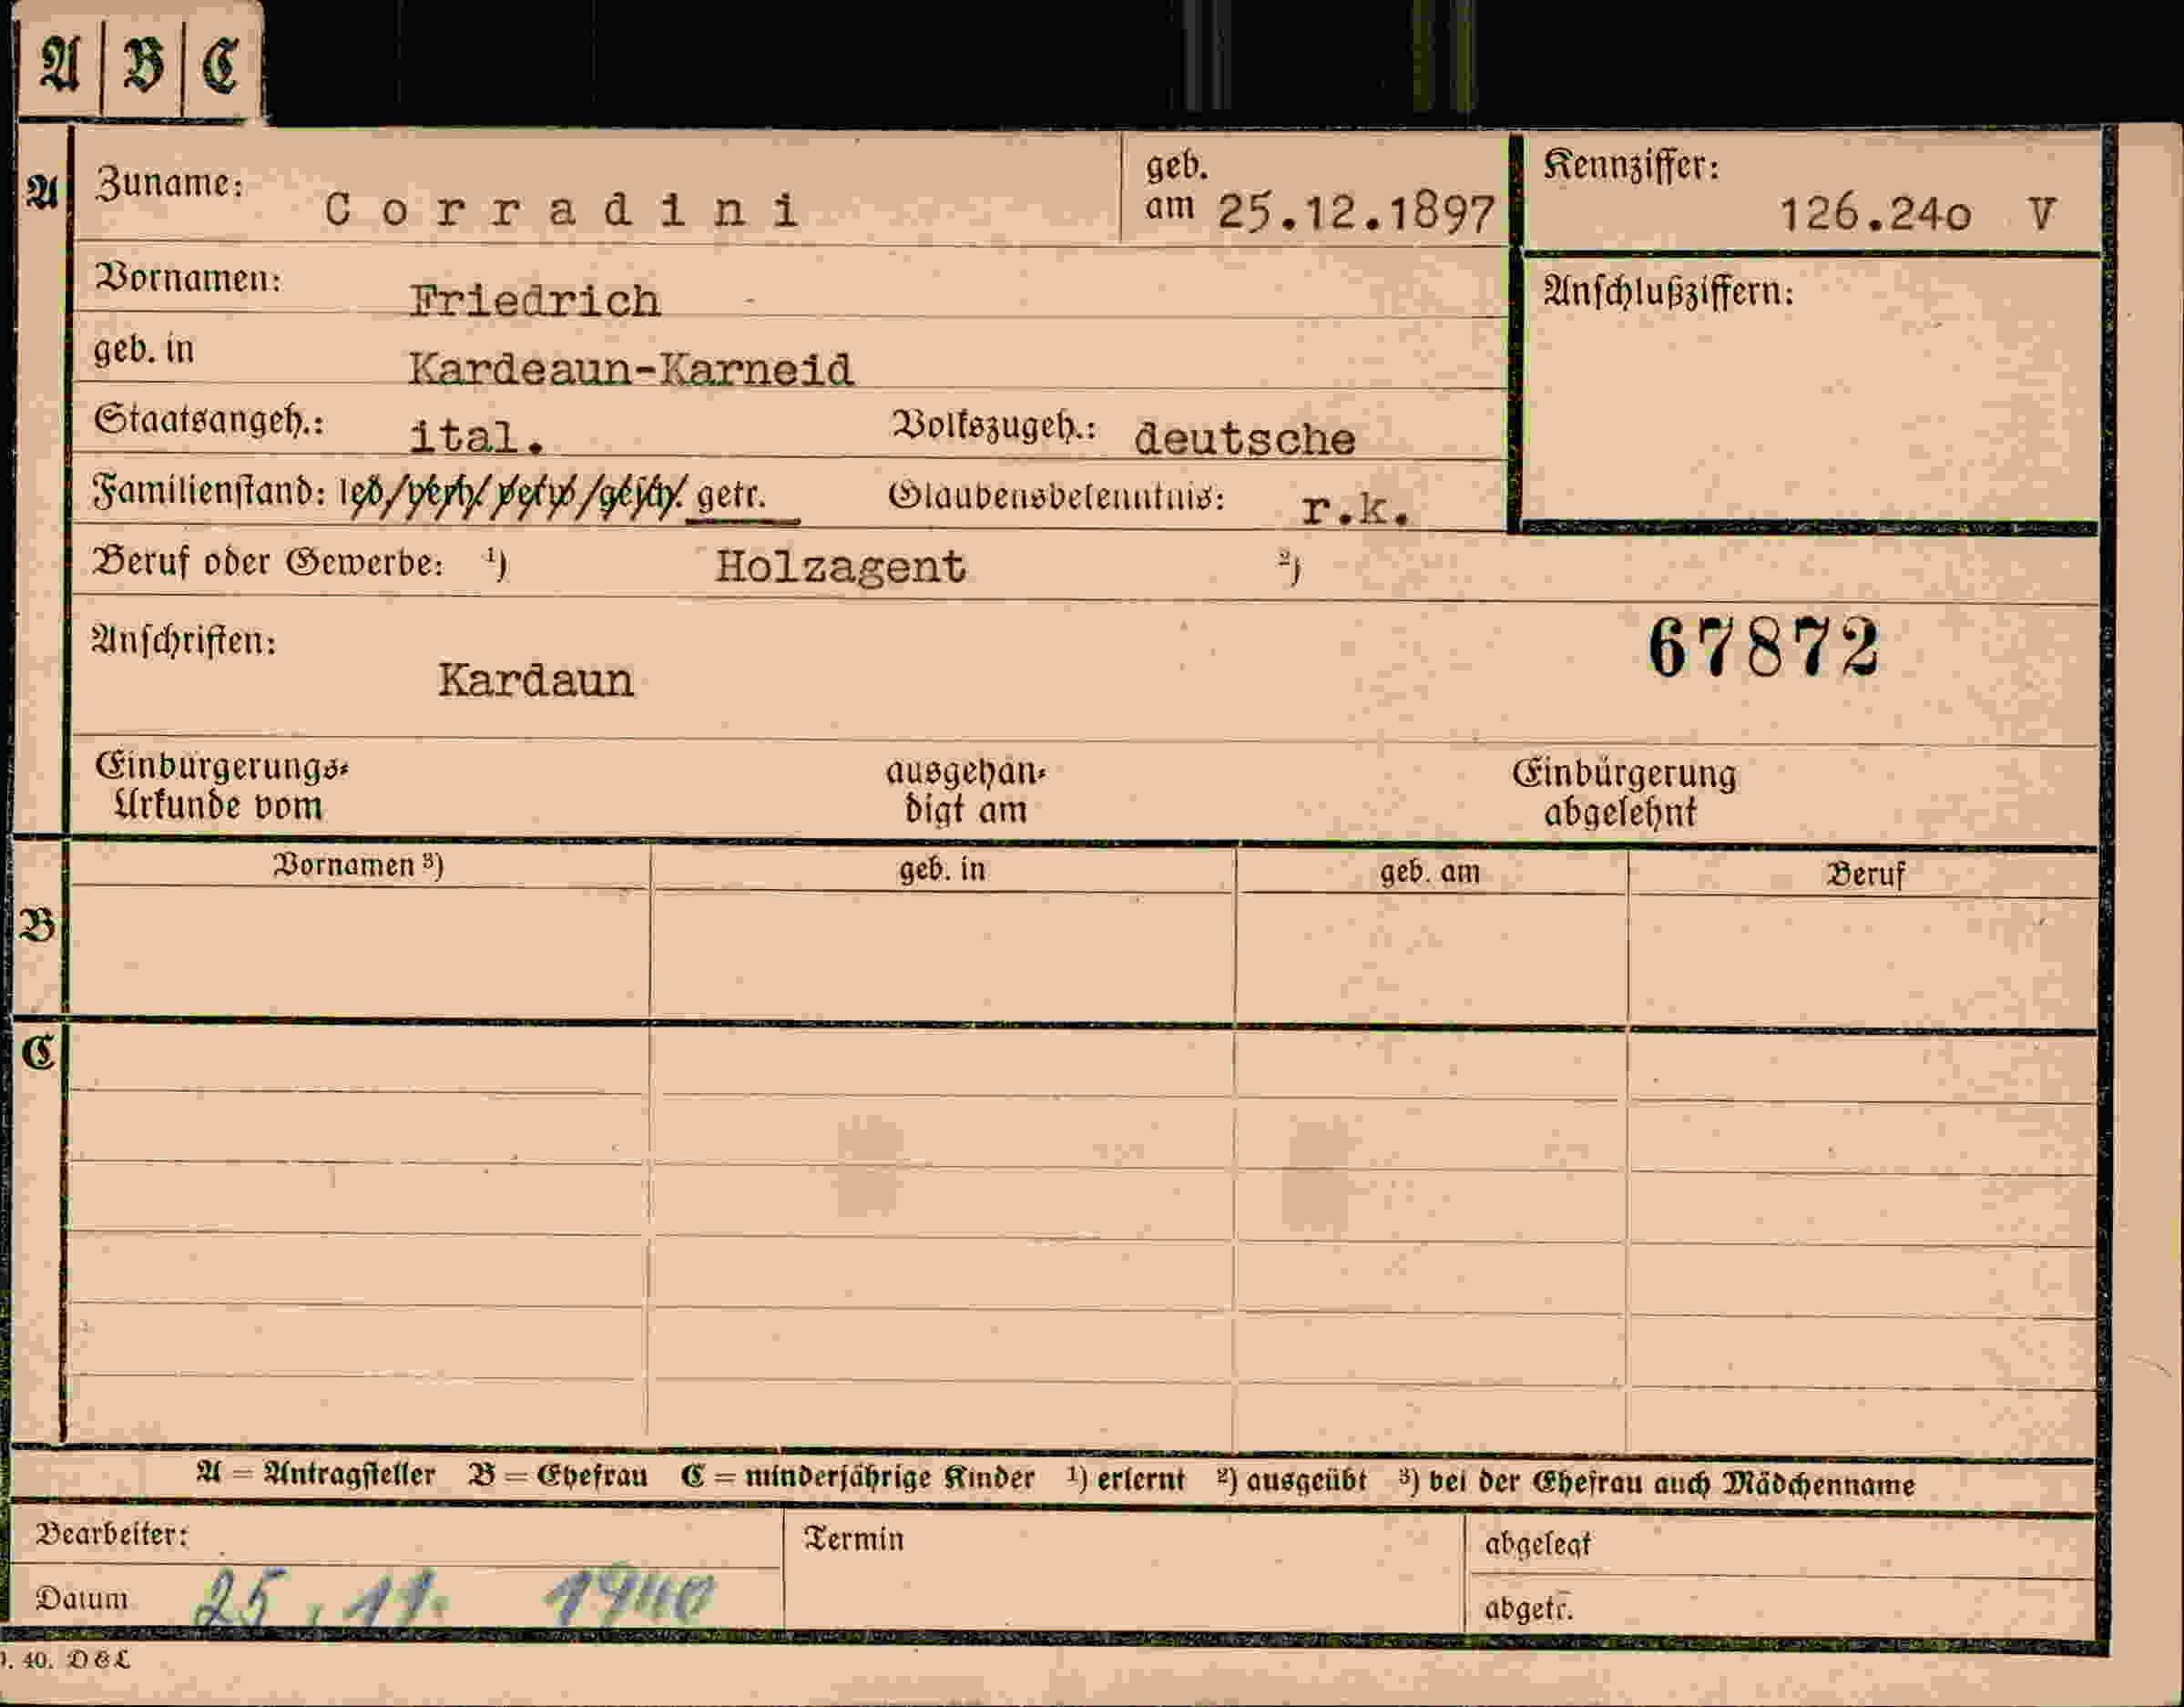 A B C
A Zuname: Corradini geb. am 25.12.1897 Kennziffer: 126.24o V
Vornamen: Friedrich Anschlußziffern:
geb. in Kardeaun-Karneid
Staatsangeh.: ital. Volkszugeh.: deutsche
Familienstand: led/verh/verw/gesch/. getr. Glaubensbekenntnis: r.k.
Beruf oder Gewerbe: ¹) Holzagent ²)
Anschriften: 67872
Kardaun
Einbürgerungs- ausgehän- Einbürgerung
Urkunde vom digt am abgelehnt
Vornamen ³) geb. in geb. am Beruf
B
C
A = Antragsteller B = Ehefrau C = minderjährige Kinder ¹) erlernt ²) ausgeübt ³) bei der Ehefrau auch Mädchenname
Bearbeiter: Termin abgelegt
Datum 25. 11. 1940 abgetr.
40. D&L